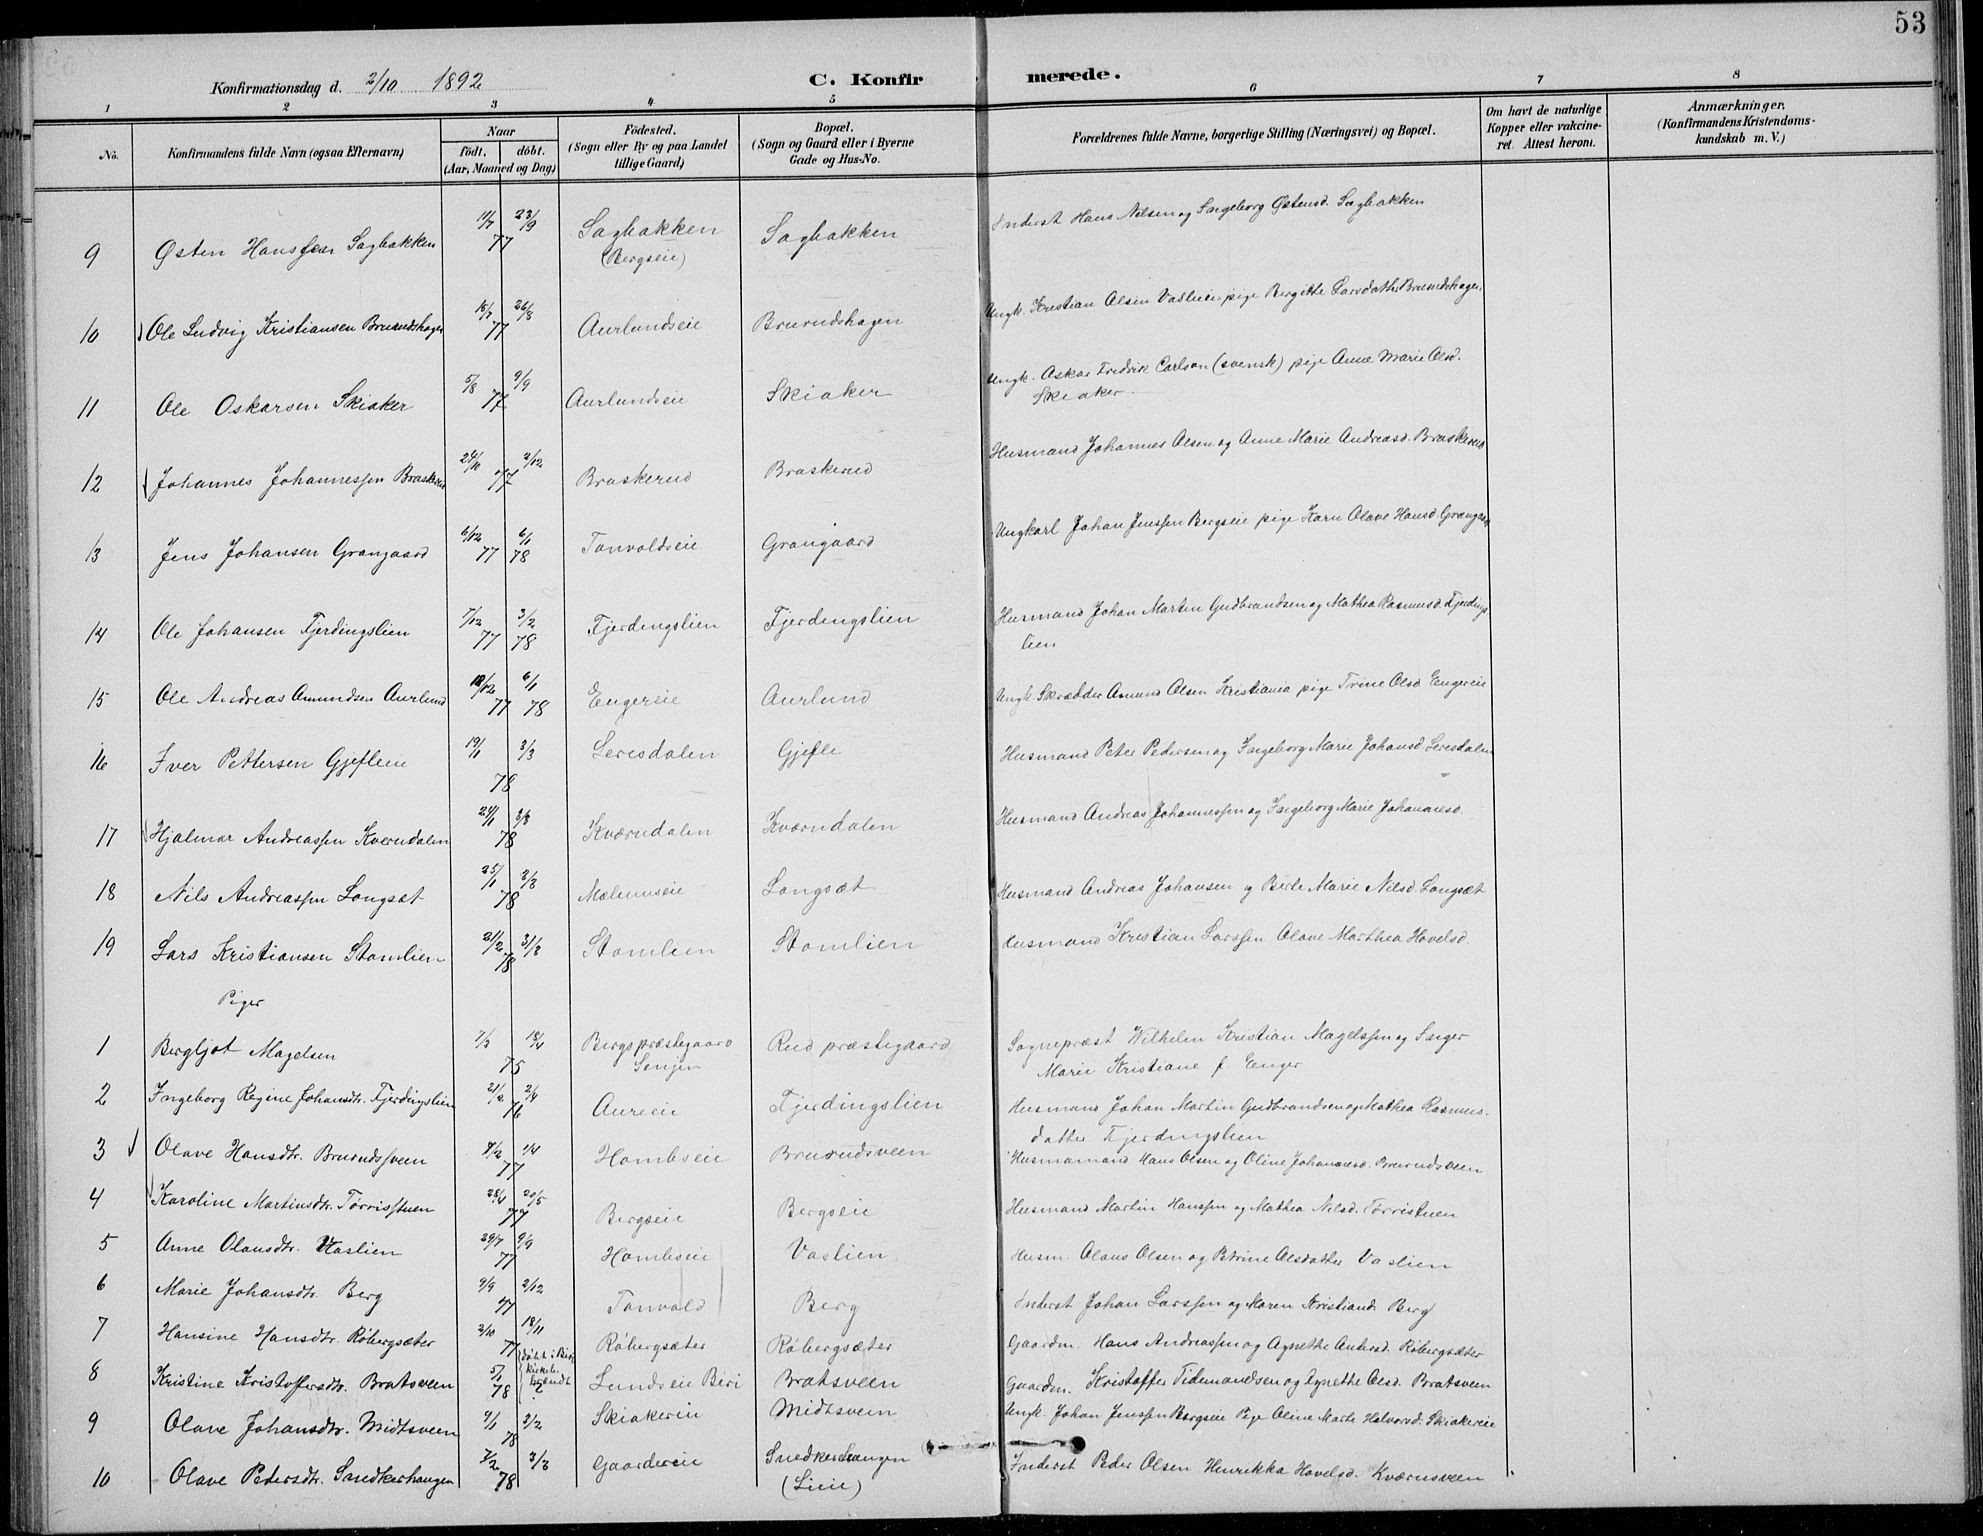 53
Konfirmationsdag d. 2/10 1892
C. Konfirmerede.
1 2 3 4 5 6 7 8
No. Konfirmandens fulde Navn (ogsaa Efternavn) Naar födt. döbt. (Aar, Maaned og Dag) Födested. (Sogn eller By og paa Landet tillige Gaard) Bopæl. (Sogn og Gaard eller i Byerne Gade og Hus-No. Forældrenes fulde Navne, borgerlige Stilling (Næringsvei) og Bopæl. Om havt de naturlige Kopper eller vakcineret. Attest herom. Anmærkninger. (Konfirmandens Kristendomskundskab m. V.)
9 Østen Hanssen Sagbakken 11/7 23/9 77 Sagbakken (Bergseie) Sagbakken Inderst Hans Nilsen og Ingeborg Østensd. Sagbakken
10 Ole Ludvig Kristiansen Brurudshagen 15/7 26/8 77 Aurlundseie Brurudshagen Ungk. Kristian Olsen Vaslien, pige Bergitte Larsdatter Brurudshagen
11 Ole Oskarsen Skiaker 5/8 9/9 77 Aurlundseie Skiaker Ungk. Oskar Fredrik Carlson (svensk) pige Anne Marie Olsd.
Skiaker
12 Johannes Johannessen Braskerud 24/10 2/12 77 Braskerud Braskerud Husmand Johannes Olsen og Anne Marie Andreasd. Braskerud
13 Jens Johansen Grangaard 6/12 77 6/1 78 Tonvoldseie Grangaard Ungkarl Johan Jenssen Bergseie pige Karn Olave Hansd. Grangaard
14 Ole Johansen Fjerdingslien 7/12 77 3/2 78 Fjerdingslien Fjerdingslien Husmand Johan Martin Gudbrandsen og Mathea Rasmusd. Fjerdings
lien
15 Ole Andreas Amundsen Aurlund 12/12 77 6/1 78 Engereie Aurlund Ungk. Skrædder Amund Olsen Kristiania pige Trine Olsd Engereie
16 Iver Pettersen Gjefleie 19/1 3/3 78 Leresdalen Gjefle Husmand Peter Pedersen og Ingeborg Marie Johansd. Leresdalen
17 Hjalmar Andreassen Kverndalen 24/1 3/3 78 Kværndalen Kværndalen Husmand Andreas Johannessen og Ingeborg Marie Johannesd.
18 Nils Andreassen Longsæt 25/1 3/3 78 Mælumseie Longsæt Husmand Andreas Johansen og Berte Marie Nilsd. Longsæt
19 Lars Kristiansen Stomlien 21/2 31/3 78 Stomlien Stomlien Husmand Kristian Larssen Olave Marthea Hovelsd.
Piger
1 Bergljot Magelsen 7/3 18/4 75 Bergs præstegaard Senjen Rud præstegaard Sognepræst Wilhelm Kristian Magelssen og Inger
Marie Kristiane f. Enger
2 Ingeborg Regine Johansdtr. Fjerdingslien 21/2 2/4 76 Aureeie Fjerdingslien Husmand Johan Martin Gudbrandsen og Mathea Rasmus-
datter Fjerdingslien
3 Olave Hansdtr. Brurudssveen 1/4 77 Hombseie Brurudsveen Husmamand Hans Olsen og Oline Johannesd. Brurudsveen
4 Karoline Martinsdtr. Tørrisstuen 28/4 20/5 77 Bergseie Bergseie Husmand Martin Hanssen og Mathea Nilsd. Tørristuen
5 Anne Olausdtr. Vaslien 29/7 9/9 77 Hombseie Vaslien Husm. Olaus Olsen og Petrine Olsdatter Vaslien
6 Marie Johansdtr. Berg 9/9 2/12 77 Tonvold Berg Inderst Johan Larssen og Maren Kristiansd. Berg
7 Hansine Hansdtr. Røbergsæter 2/10 18/11 77 Røbergsæter Røbergsæter Gaardm. Hans Andreassen og Agnethe Andersd. Røbergsæter
8 Kristine Kristoffersdtr. Bratsveen 5/1 78 døbt i Biri kirkeb. brændt ? Lundseie Biri Bratsveen Gaardm. Kristoffer Tidemandsen og Agnethe Olsd. Bratsveen
9 Olave Johansdtr. Midtsveen 9/1 3/2 78 Skiakereie Midtsveen Ungk. Johan Jenssen Bergseie Pige Oline Marte Halvorsd. Skiakereie
10 Olave Pedersdtr. Snedkerhaugen 7/2 3/3 78 Gaardereie Snedkerhaugen (Lieie) Inderst Peder Olsen Henrikka Hovelsd. Kværnsveen